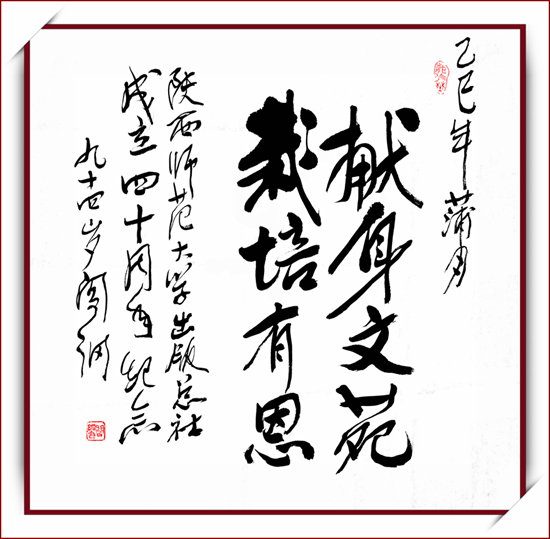 乙巳年蒲月
献身文苑
栽培有恩
陕西师范大学出版总社
成立四十周年纪念
九十四岁阎纲